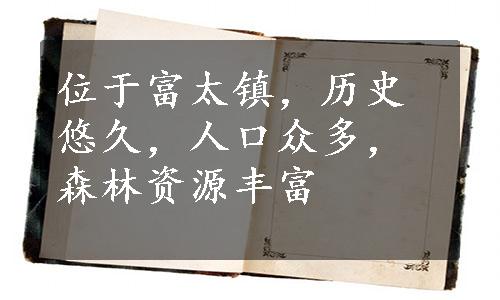 位于富太镇，历史
悠久，人口众多，
森林资源丰富